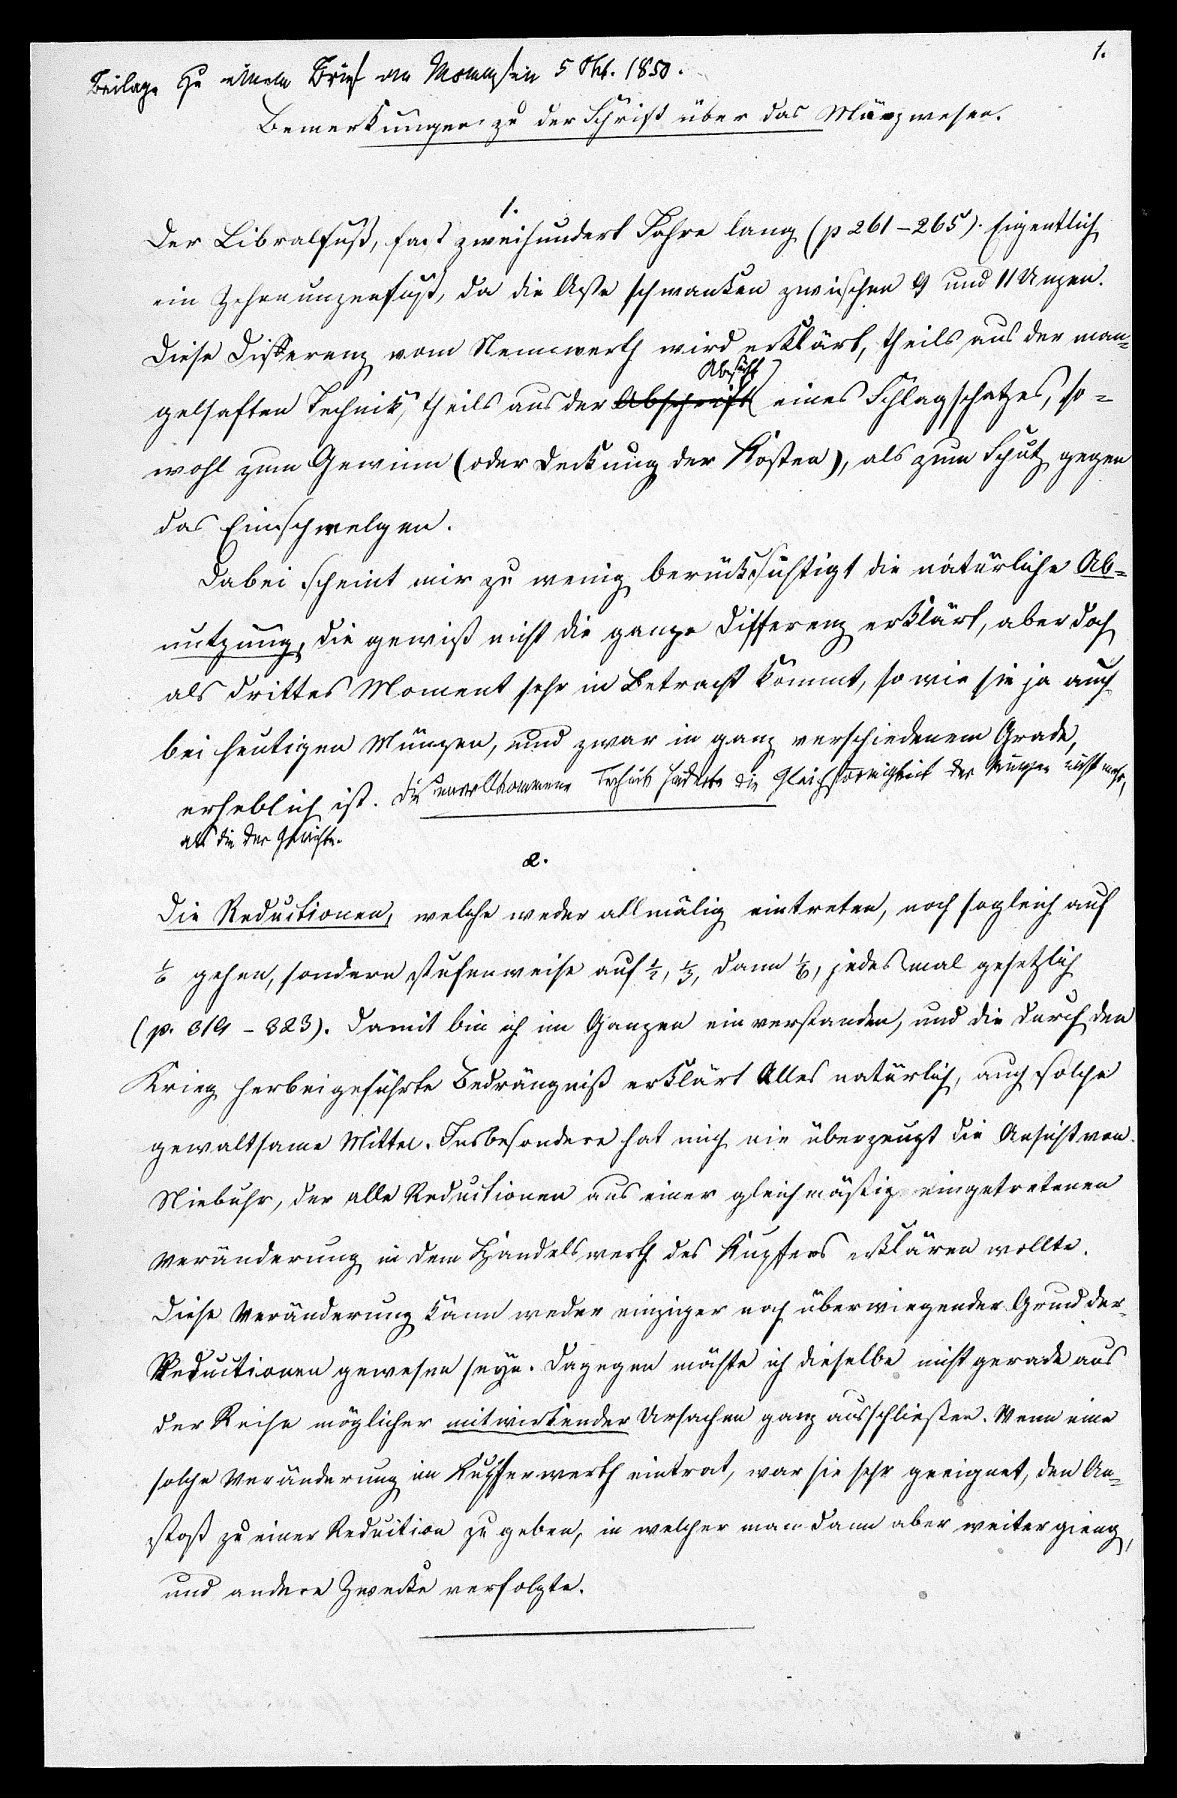 1.
Beilage zu einem Brief an Mommsen 5 Okt. 1850.
Bemerkungen zu der Schrift über das Münzwesen.
1.
Der Libralfuß, fast zweihundert Jahre lang (p 261-265). Eigentlich
ein Zehnunzenfuß, da die Asse schwanken zwischen 9 und 11 Unzen.
Diese Differenz vom Nennwerth wird erklärt, theils aus der man-
gelhaften Technik, theils aus der Abschrift Absicht eines Schlagschatzes, so-
wohl zum Gewinn (oder Deckung der Kosten), als zum Schutz gegen
das Einschmelzen.
Dabei scheint mir zu wenig berücksichtigt die natürliche Ab-
nutzung, die gewiß nicht die ganze Differenz erklärt, aber doch
als drittes Moment sehr in Betracht kommt, so wie sie ja auch
bei heutigen Münzen, und zwar in ganz verschiedenem Grade,
erheblich ist. Die unvollkommene Technik hinderte die Gleichförmigkeit der Münzen nicht mehr,
als die der Gewichte.
2.
Die Reductionen, welche weder allmälig eintreten, noch sogleich auf
1/6 gehen, sondern stufenweise auf 1/2, 1/3, dann 1/6, jedesmal gesetzlich
(p. 314 - 323). Damit bin ich im Ganzen einverstanden, und die durch den
Krieg herbeigeführte Bedrängniß erklärt Alles natürlich, auch solche
gewaltsame Mittel. Insbesondere hat mich nie überzeugt die Ansicht von
Niebuhr, der alle Reductionen aus einer gleichmäßig eingetretenen
Veränderung in dem Handelswerth des Kupfers erklären wollte.
Diese Veränderung kann weder einziger noch überwiegender Grund der
Reductionen gewesen seyn. Dagegen möchte ich dieselbe nicht gerade aus
der Reihe möglicher mitwirkender Ursachen ganz ausschließen. Wenn eine
solche Veränderung im Kupferwerth eintrat, war sie sehr geeignet, den An-
stoß zu einer Reduction zu geben, in welcher man dann aber weiter gieng,
und andere Zwecke verfolgte.